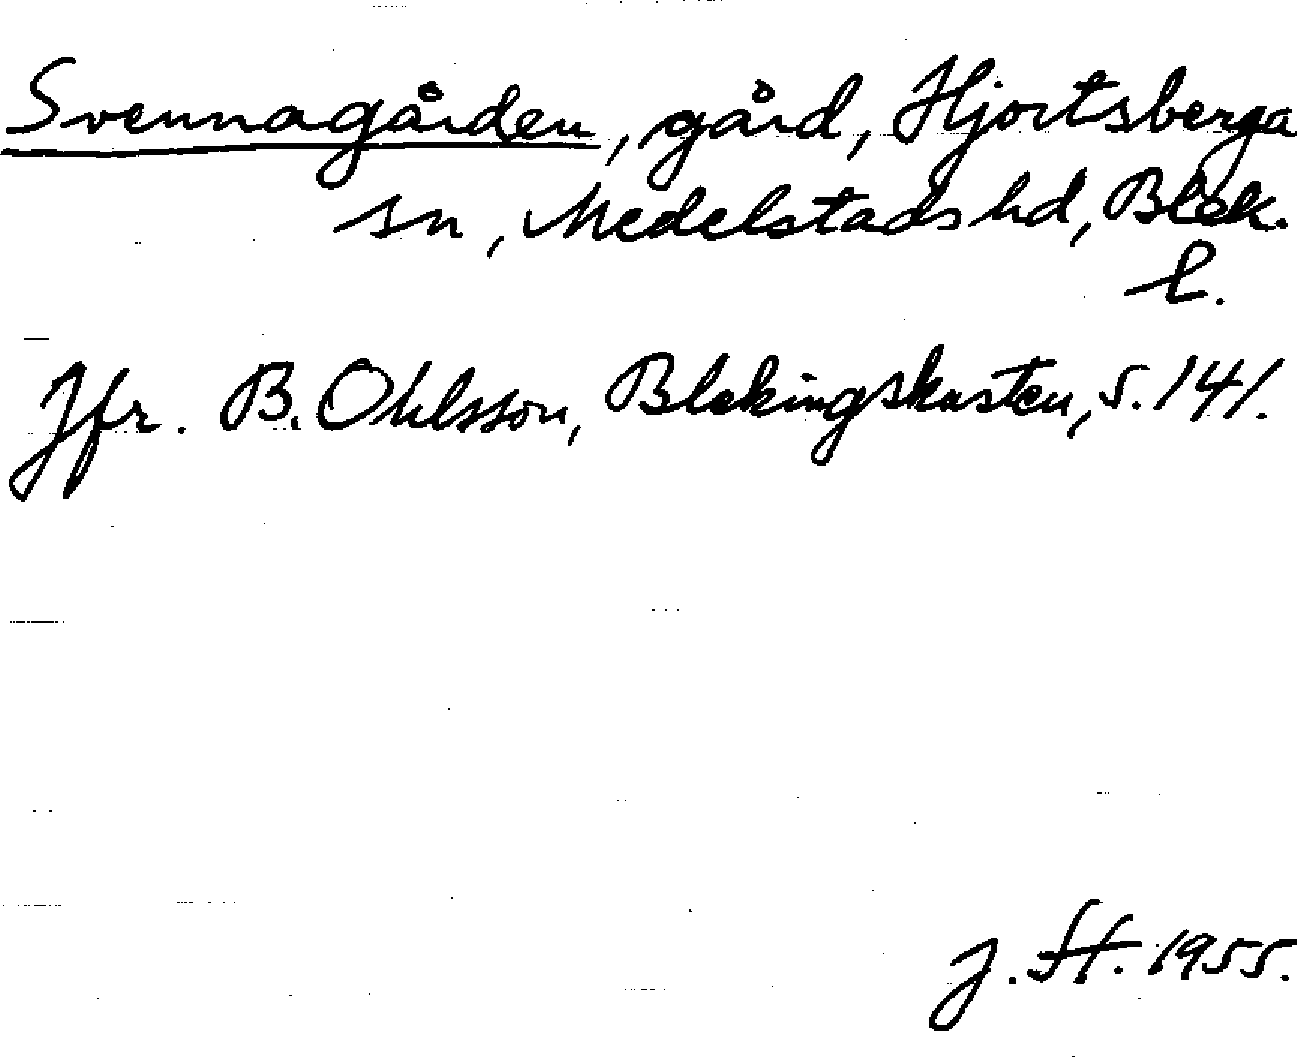 Svennagården, gård, Hjortsberga
sn, Medelstads hd, Blek.
l.
Jfr. B. Ohlsson, Blekingskusten, s. 141.
J. St. 1955.